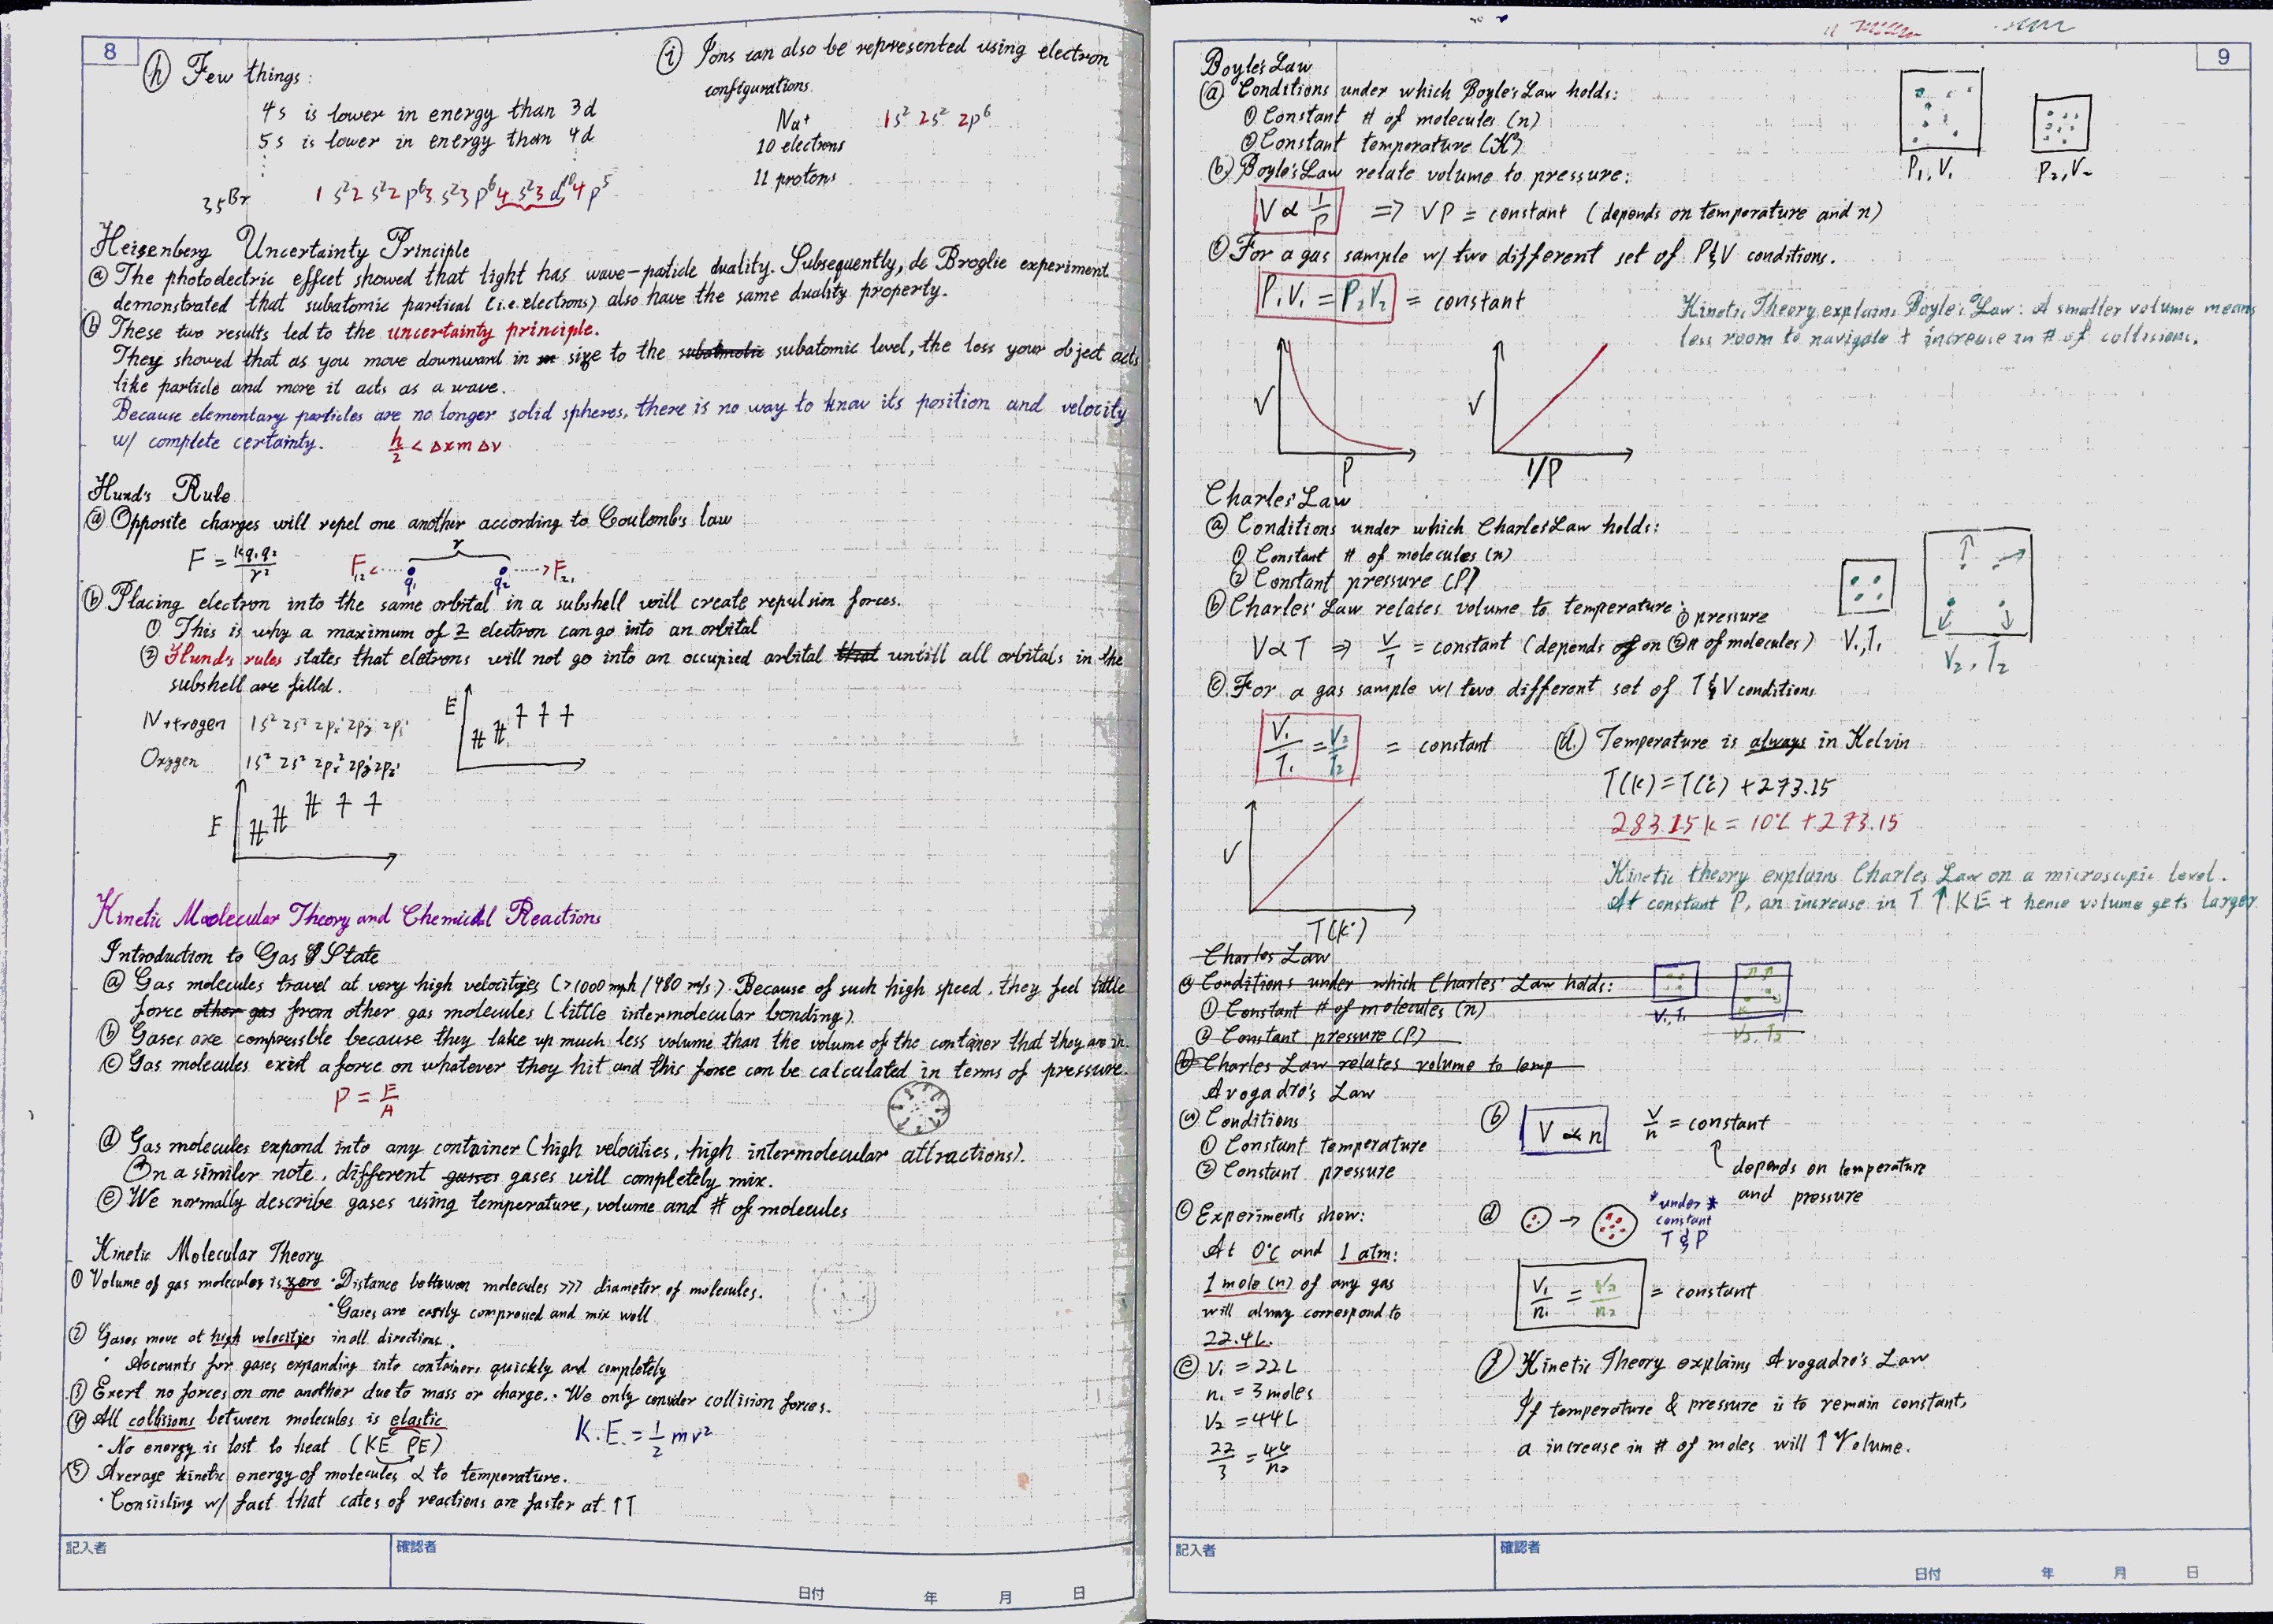 8
ⓗ Few things:
4s is lower in energy than 3d
5s is lower in energy than 4d
⋮
35Br 1s²2s²2p⁶3s²3p⁶4s²3d¹⁰4p⁵
ⓘ Ions can also be represented using electron
configurations.
Na⁺ 1s² 2s² 2p⁶
10 electrons
11 protons
Heisenberg Uncertainty Principle
ⓐ The photoelectric effect showed that light has wave-paticle duality. Subsequently, de Broglie experiment
demonstrated that subatomic partical (i.e. electrons) also have the same duality property.
ⓑ These two results led to the uncertainty principle.
They showed that as you move downward in size to the subatomic level, the less your object acts
like particle and more it acts as a wave.
Because elementary particles are no longer solid spheres, there is no way to know its position and velocity
w/ complete certainty. h/2 < Δx m Δv
Hund's Rule
ⓐ Opposite charges will repel one another according to Coulomb's law
F = kq₁q₂/r² r
F₁₂ q₁ q₂ F₂₁
ⓑ Placing electron into the same orbital in a subshell will create repulsion forces.
① This is why a maximum of 2 electron can go into an orbital
② Hund's rules states that eletrons will not go into an occupied orbital that untill all orbitals in the
subshell are filled.
Nitrogen 1s² 2s² 2px¹ 2py¹ 2pz¹
E
Oxygen 1s² 2s² 2px² 2py¹ 2pz¹
E
Kinetic Molecular Theory and Chemical Reactions
Introduction to Gas State
ⓐ Gas molecules travel at very high velocities (>1000 mph / 480 m/s). Because of such high speed, they feel little
force other gas from other gas molecules (little intermolecular bonding).
ⓑ Gases are compressible because they take up much less volume than the volume of the container that they are in.
ⓒ Gas molecules exert a force on whatever they hit and this force can be calculated in terms of pressure.
P = F/A
ⓓ Gas molecules expand into any container (high velocities, high intermolecular attractions).
On a similer note, different gasses gases will completely mix.
ⓔ We normally describe gases using temperature, volume and # of molecules
Kinetic Molecular Theory
① Volume of gas molecules is zero · Distance between molecules >>> diameter of molecules.
· Gases are easily compressed and mix well
② Gases move at high velocities in all directions.
· Accounts for gases expanding into containers quickly and completely
③ Exert no forces on one another due to mass or charge. · We only consider collision forces.
④ All collisions between molecules is elastic
· No energy is lost to heat (KE PE) K.E. = 1/2 mv²
⑤ Average kinetic energy of molecules ∝ to temperature.
· Consisting w/ fact that rates of reactions are faster at ↑T
記入者 確認者
日付 年 月 日
9
Boyle's Law
ⓐ Conditions under which Boyle's Law holds:
① Constant # of molecules (n)
② Constant temperature (K)
P₁,V₁ P₂,V₂
ⓑ Boyle's Law relate volume to pressure:
V ∝ 1/P => VP = constant (depends on temperature and n)
ⓒ For a gas sample w/ two different set of P & V conditions.
P₁V₁ = P₂V₂ = constant
Kinetic Theory explains Boyle's Law: A smaller volume means
less room to navigate + increase in # of collisions.
V P
V 1/P
Charles' Law
ⓐ Conditions under which Charles Law holds:
① Constant # of molecules (n)
② Constant pressure (P)
ⓑ Charles' Law relates volume to temperature:
V ∝ T ⇒ V/T = constant (depends of on ① pressure ② # of molecules)
V₁,T₁
V₂, T₂
ⓒ For a gas sample w/ two different set of T & V conditions
V₁/T₁ = V₂/T₂ = constant
V T(K°)
ⓓ Temperature is always in Kelvin
T(K) = T(°C) + 273.15
283.15 K = 10°C + 273.15
Kinetic theory explains Charles Law on a microscopic level.
At constant P, an increase in T ↑ KE + hence volume gets larger
Charles Law
ⓐ Conditions under which Charles' Law holds:
① Constant # of molecules (n)
② Constant pressure (P)
V₁,T₁ V₂,T₂
ⓑ Charles Law relates volume to temp
Avogadro's Law
ⓐ Conditions
① Constant temperature
② Constant pressure
ⓑ V ∝ n V/n = constant
depends on temperature
and pressure
ⓒ Experiments show:
At 0°C and 1 atm:
1 mole (n) of any gas
will alway correspond to
22.4L.
ⓓ → *under*
constant
T & P
V₁/n₁ = V₂/n₂ = constant
ⓔ V₁ = 22L
n₁ = 3 moles
V₂ = 44L
22/3 = 44/n₂
ⓕ Kinetic Theory explains Avogadro's Law
If temperature & pressure is to remain constant,
a increase in # of moles will ↑ Volume.
記入者 確認者
日付 年 月 日